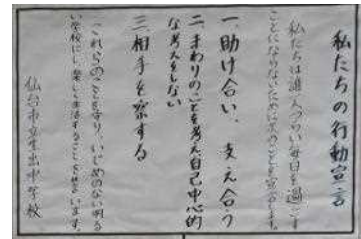 私たちの行動宣言
私たちは誰一人つらい毎日を過ごす
ことにならないために次のことを宣言します。
一 助け合い、支え合う
二 まわりの心を考え自己中心的
な考えをしない
三 相手を察する
これらのことを守り、いじめのない明る
い学校にし、楽しく生活することを誓います。
仙台市立生出中学校